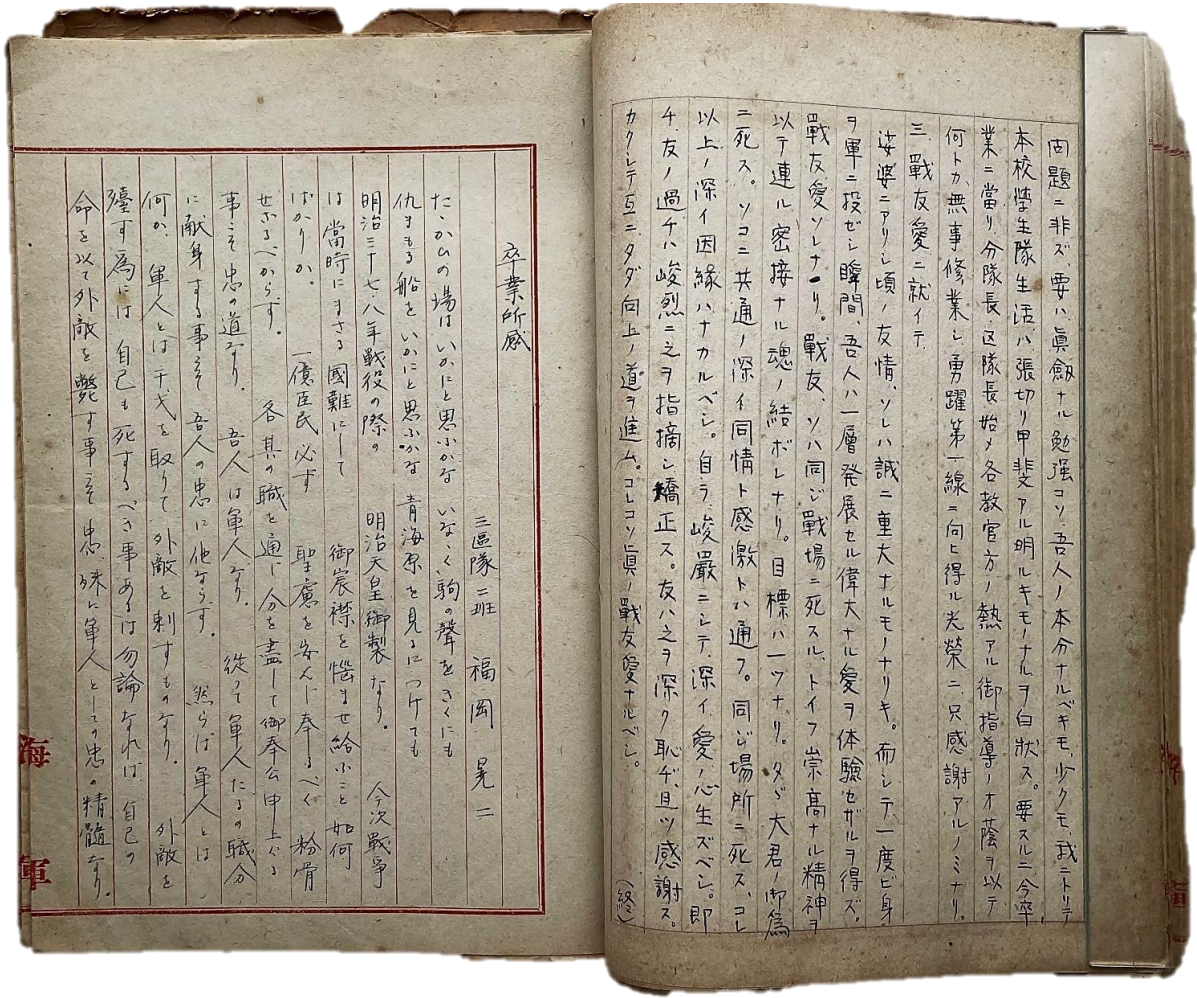 問題ニ非ズ、要ハ眞劔ナル勉强コソ、吾人ノ本分ナルベキモ、少クモ、我ニトリテ
本校學生隊生活ハ張切リ甲斐アル明ルキモノナルヲ白狀ス。要スルニ今卒
業ニ當リ、分隊長、区隊長始メ各教官方ノ熱アル御指導ノオ蔭ヲ以テ
何トカ無事修業シ勇躍第一線ニ向ヒ得ル光榮ニ、只感謝アルノミナリ。
三、戰友愛ニ就イテ
娑婆ニアリシ頃ノ友情、ソレハ誠ニ重大ナルモノナリキ。而シテ一度ビ身
ヲ軍ニ投ゼシ瞬間、吾人ハ一層発展セル偉大ナル愛ヲ体驗セザルヲ得ズ。
戰友愛ソレナリ。戰友、ソハ同ジ戰場ニ死スル、トイフ崇高ナル精神ヲ
以テ連ル、密接ナル魂ノ結ボレナリ。目標ハ一ツナリ。タヾ大君ノ御爲
ニ死ス。ソコニ共通ノ深イ同情ト感激トハ通フ。同ジ場所ニ死ス、コレ
以上ノ深イ因緣ハナカルベシ。自ラ、峻嚴ニシテ、深イ愛ノ心生ズベシ。即
チ、友ノ過チハ峻烈ニ之ヲ指摘シ矯正ス。友ハ之ヲ深ク恥ヂ、且ツ感謝ス。
カクシテ互ニタダ向上ノ道ヲ進ム。コレコソ眞ノ戰友愛ナルベシ。
(終)
卒業所感
三區隊二班 福岡 晃二
たゝかひの場はいかにと思ふかな いなゝく駒の聲をきくにも
仇まもる船をいかにと思ふかな 青海原を見るにつけても
明治三十七八年戰役の際の 明治天皇御製なり。 今次戰爭
は當時にまさる國難にして 御宸襟を惱ませ給ふこと如何
ばかりか。 一億臣民必ず 聖慮を安んじ奉るべく 粉骨
せざるべからず。 各其の職を通じ分を盡して御奉公申上ぐる
事こそ忠の道なり。 吾人は軍人なり。 從つて軍人たるの職分
に献身する事こそ 吾人の忠に他ならず。 然らば 軍人とは
何か、軍人とは干戈を取りて 外敵を刺すものなり。 外敵を
殪す爲には 自己も死するべき事あるは勿論なれば 自己の
命を以て外敵を斃す事こそ忠、殊に軍人としての忠の精髓なり。
海軍